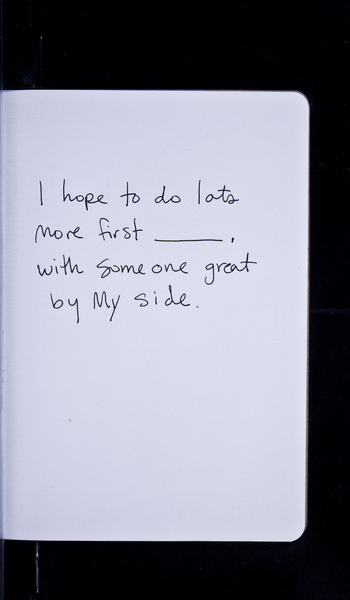 I hope to do lots
More first ______,
with someone great
by My side.